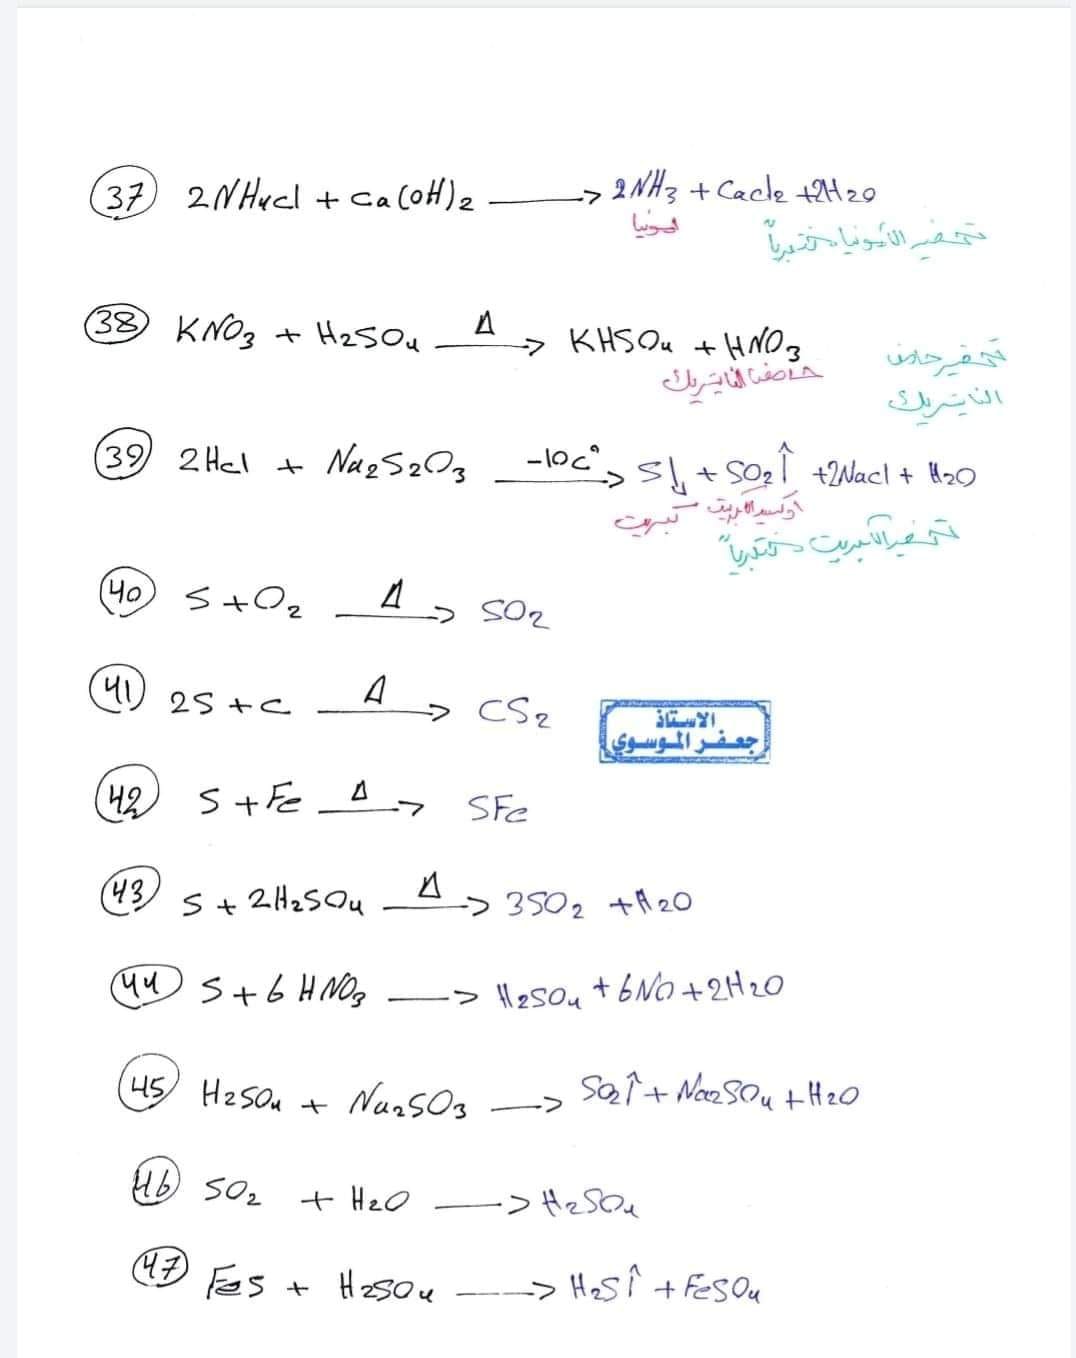 37 2NH4Cl + Ca(OH)2 → 2NH3 + CaCl2 + 2H2O
امونيا
تحضير الأمونيا مختبرياً
38 KNO3 + H2SO4 Δ→ KHSO4 + HNO3
حامض النايتريك
تحضير حامض
النايتريك
39 2HCl + Na2S2O3 -10C°→ S↓ + SO2↑ + 2NaCl + H2O
كبريت اوكسيد الكبريت
تحضير الكبريت مختبرياً
40 S + O2 Δ→ SO2
41 2S + C Δ→ CS2
الاستاذ
جعفر الموسوي
42 S + Fe Δ→ SFe
43 S + 2H2SO4 Δ→ 3SO2 + H2O
44 S + 6HNO3 → H2SO4 + 6NO + 2H2O
45 H2SO4 + Na2SO3 → SO2↑ + Na2SO4 + H2O
46 SO2 + H2O → H2SO4
47 FeS + H2SO4 → H2S↑ + FeSO4